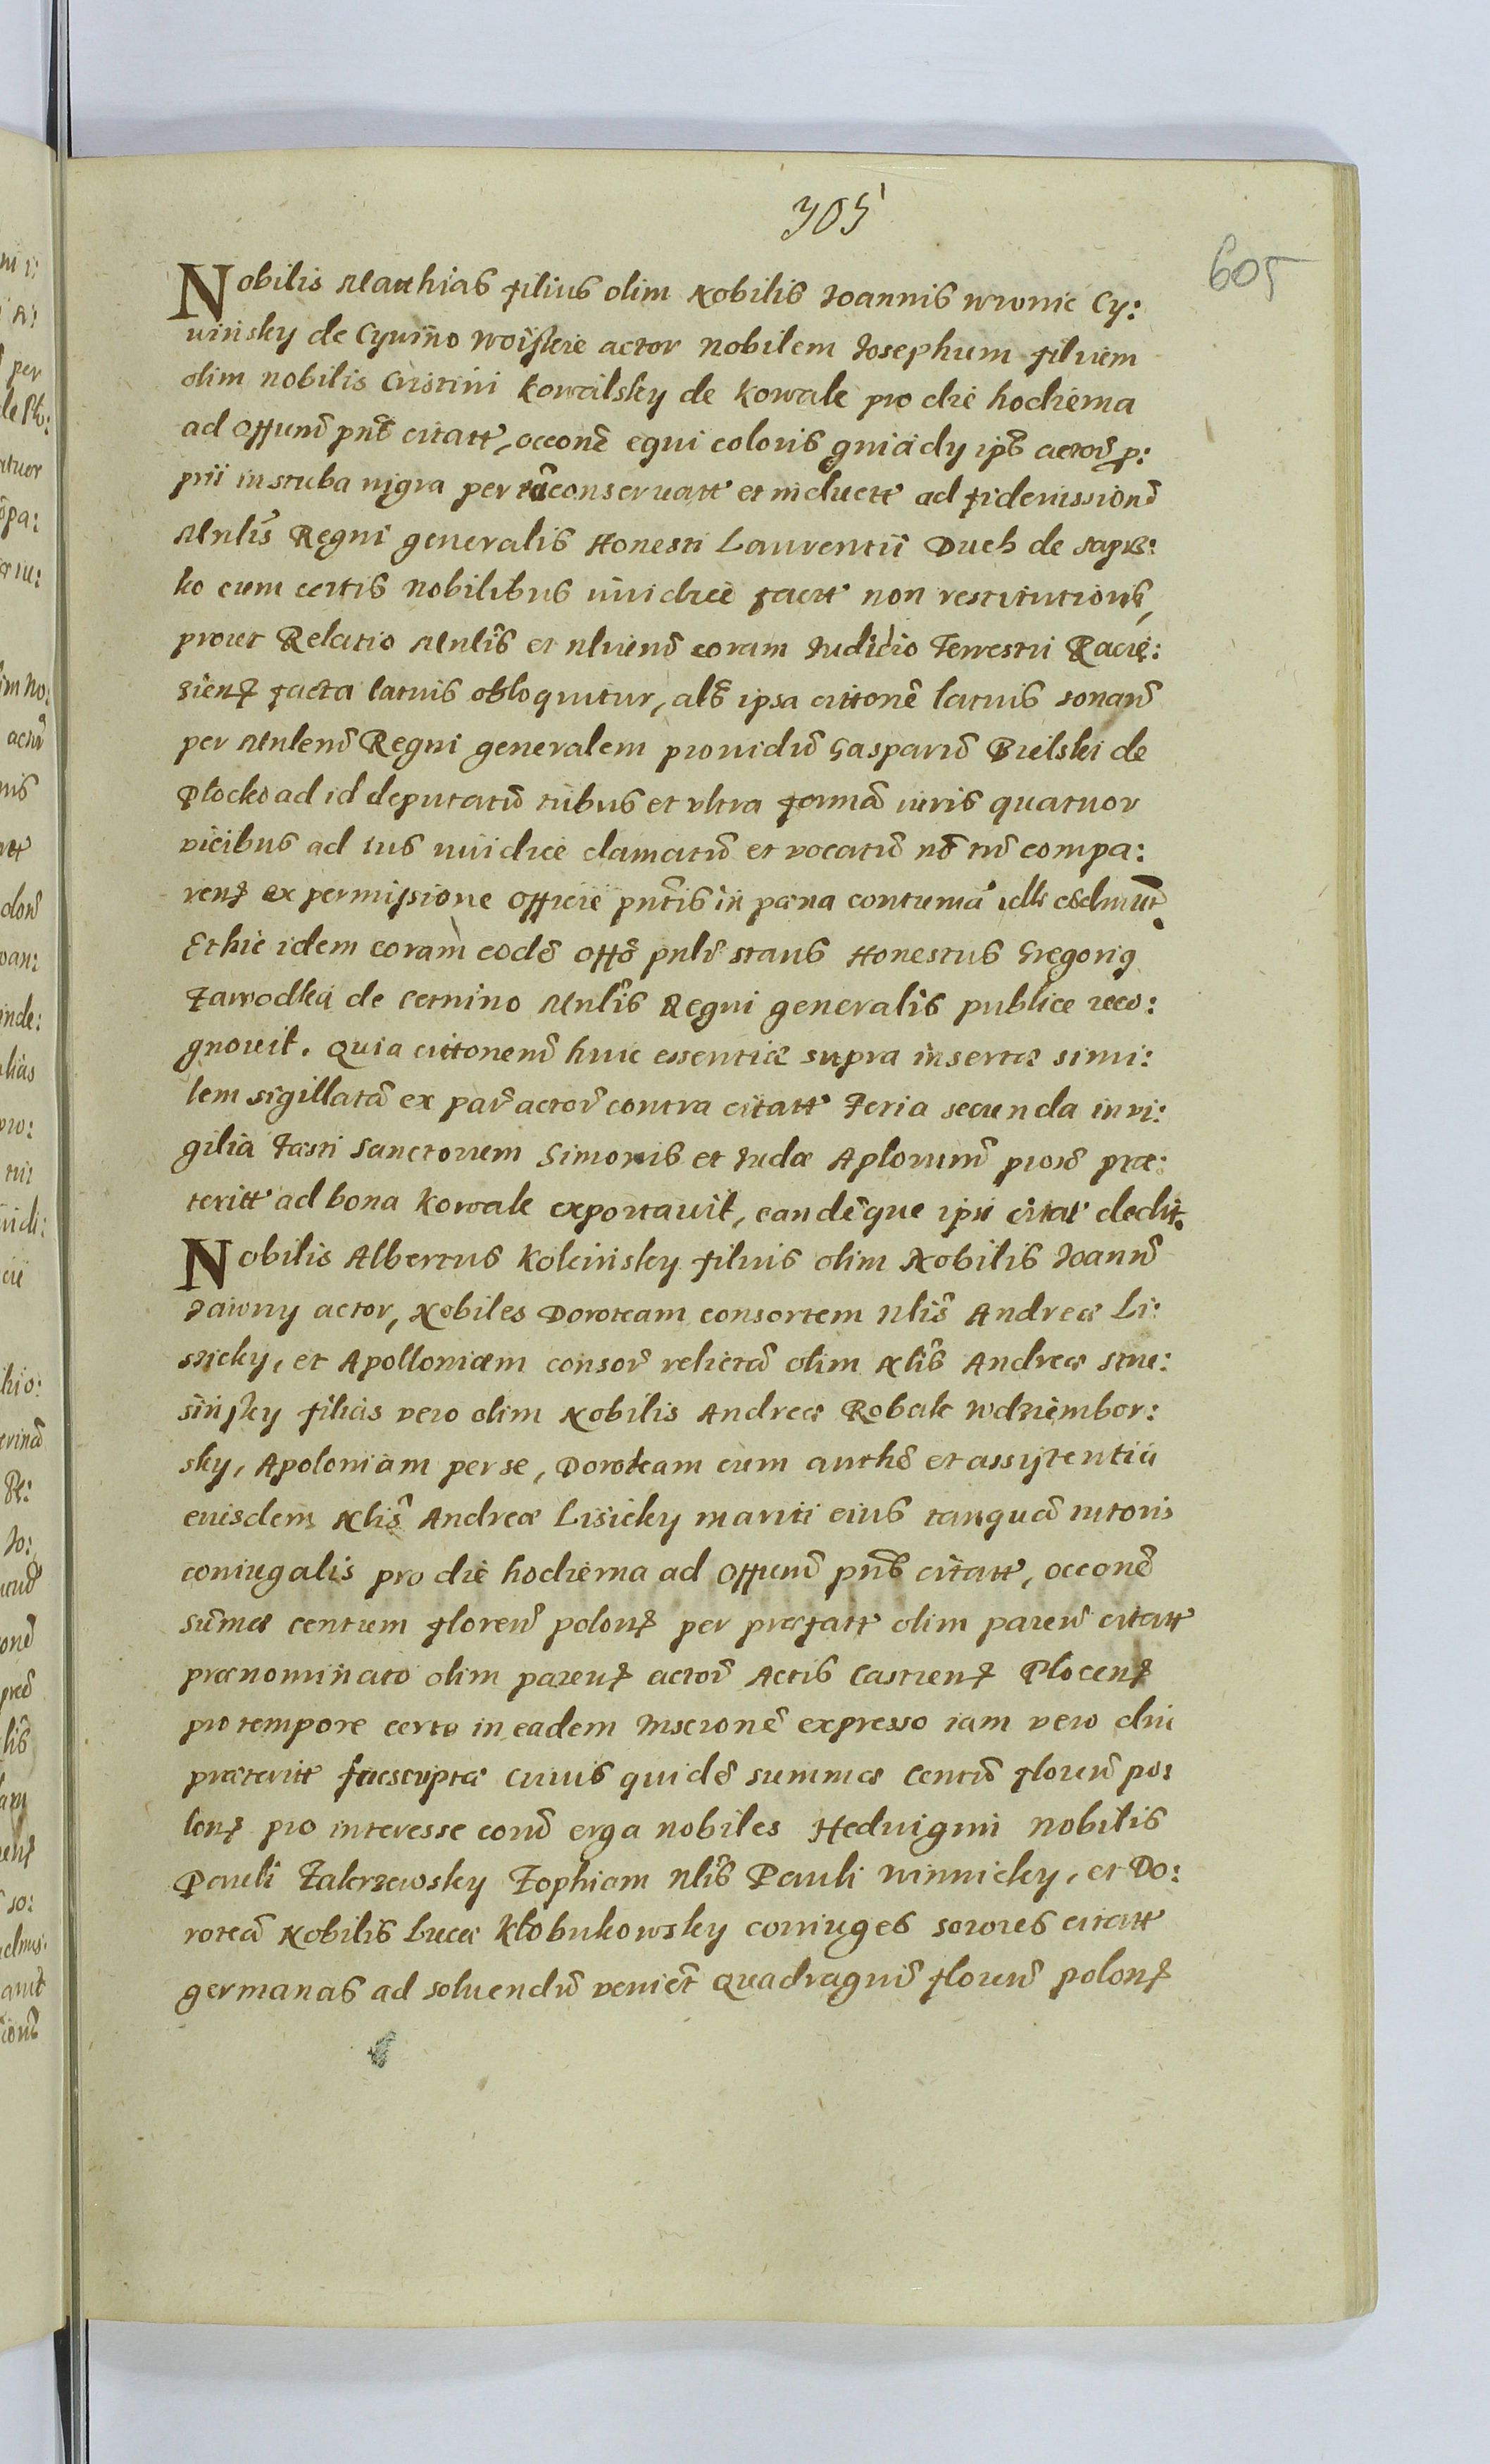 305
605
Nobilis Matthias filius olim Nobilis Joannis Wronic Cy:
vinsky de Cyvino Woiskie actor Nobilem Josephum filium
olim nobilis Cristini Kowalsky de Kowale pro die hodierna
ad offum pnt citatt, occone equi coloris gniady ips actor p:
prii in stuba nigra per conservatt et inductt ad fideiussion
Mnlis Regni generalis Honesti Laurentii Duch de
ko cum certis nobilibus iuridice factt non restitutionis,
prout Relatio Mnlis et nlium coram Judicio Terrestri Racię:
ziens facta latius obloquitur, als ipsa cittone latius sonan
per Mnlem Regni generalem providu Gasparu Bielski de
Plocko ad id deputatu tribus et vltra forma iuris quatuor
vicibus ad ius iuridice clamatu et vocatu no tn compa:
rens ex permissione officii pntis in pœna contuma
Et hic idem coram eode offo pnli stans Honestus Gregorig
Zawodka de Cetnino Mnlis Regni generalis publice reco:
gnovit. Quia cittonem huic essentiæ supra insertæ simi:
lem sigillata ex par actor contra citatt Feria secunda in vi:
gilia Festi Sanctorum Simonis et Judæ Aplorum proxo præ:
teritt ad bona Kowale exportavit, eandeque ipsi citat dedit.
Nobilis Albertus Kolcinsky filius olim Nobilis Joann
Jawny actor, Nobiles Doroteam consortem Nlis Andreæ Li:
sicky, et Apolloniam consor relicta olim Nlis Andreæ
sinsky filias vero olim Nobilis Andreæ Robak Wdziembor:
sky, Apoloniam per se, Doroteam cum autho et assistentia
eiusdem Nlis Andreæ Lisicky mariti eius tanqua tutoris
coniugalis pro die hodierna ad offum pns citatt, occone
sumæ centum floren polons per præfatt olim paren citatt
prænominato olim parens actor Actis Castrens Plocens
pro tempore certo in eadem Inscrone expresso iam vero diu
præteritt Inscriptæ cuius quide summæ Centu floren po:
lons pro interesse eoru erga nobiles Hedvigim nobilis
Pauli Zakrzewsky Zophiam Nlis Pauli Winnicky, et Do:
rotea Nobilis Lucæ Klobukowsky coniuges sorores citatt
germanas ad solvendu venient Quadragin floren polons